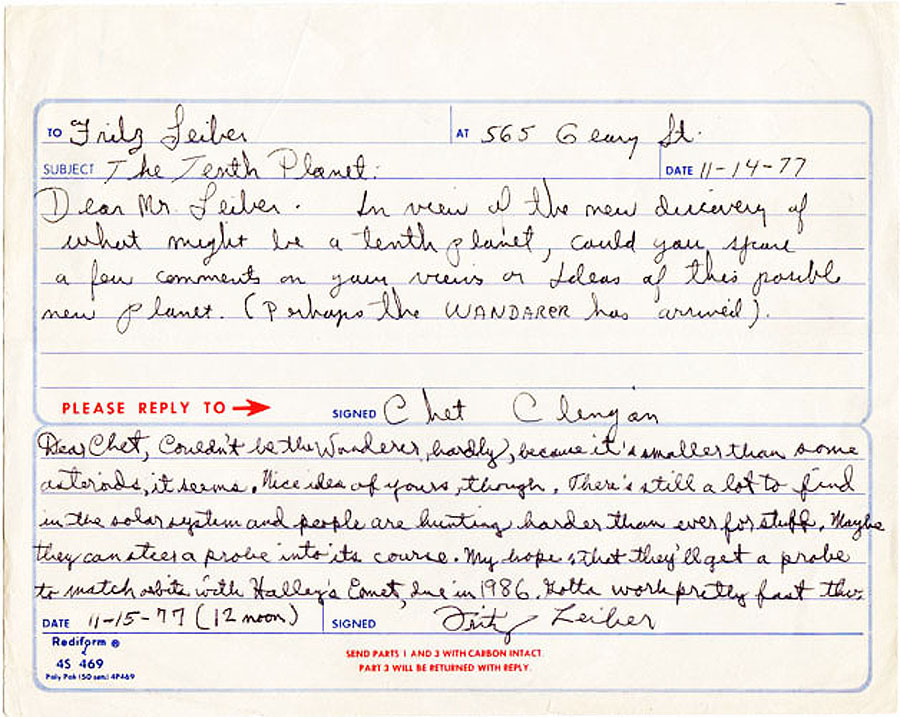 TO Fritz Leiber AT 565 Geary St.
SUBJECT The Tenth Planet. DATE 11-14-77
Dear Mr. Leiber. In view of the new discovery of
what might be a tenth planet, could you, spare
a few comments on your views or ideas of this posible
new planet. (Perhaps the WANDARER has arrived).
PLEASE REPLY TO → SIGNED Chet Clengan
Dear Chet, Couldn't be the Wanderer, hardly, because it's smaller than some
asteroids, it seems. Nice idea of yours, though. There's still a lot to find
in the solar system and people are hunting harder than ever for stuff. Maybe
they can steer a probe into its course. My hope is that they'll get a probe
to match orbits with Halley's Comet, due in 1986. Gotta work pretty fast tho.
DATE 11-15-77 (12 noon) SIGNED Fritz Leiber
Rediform ®
4S 469
Poly Pak (50 sets) 4P469
SEND PARTS 1 AND 3 WITH CARBON INTACT.
PART 3 WILL BE RETURNED WITH REPLY.